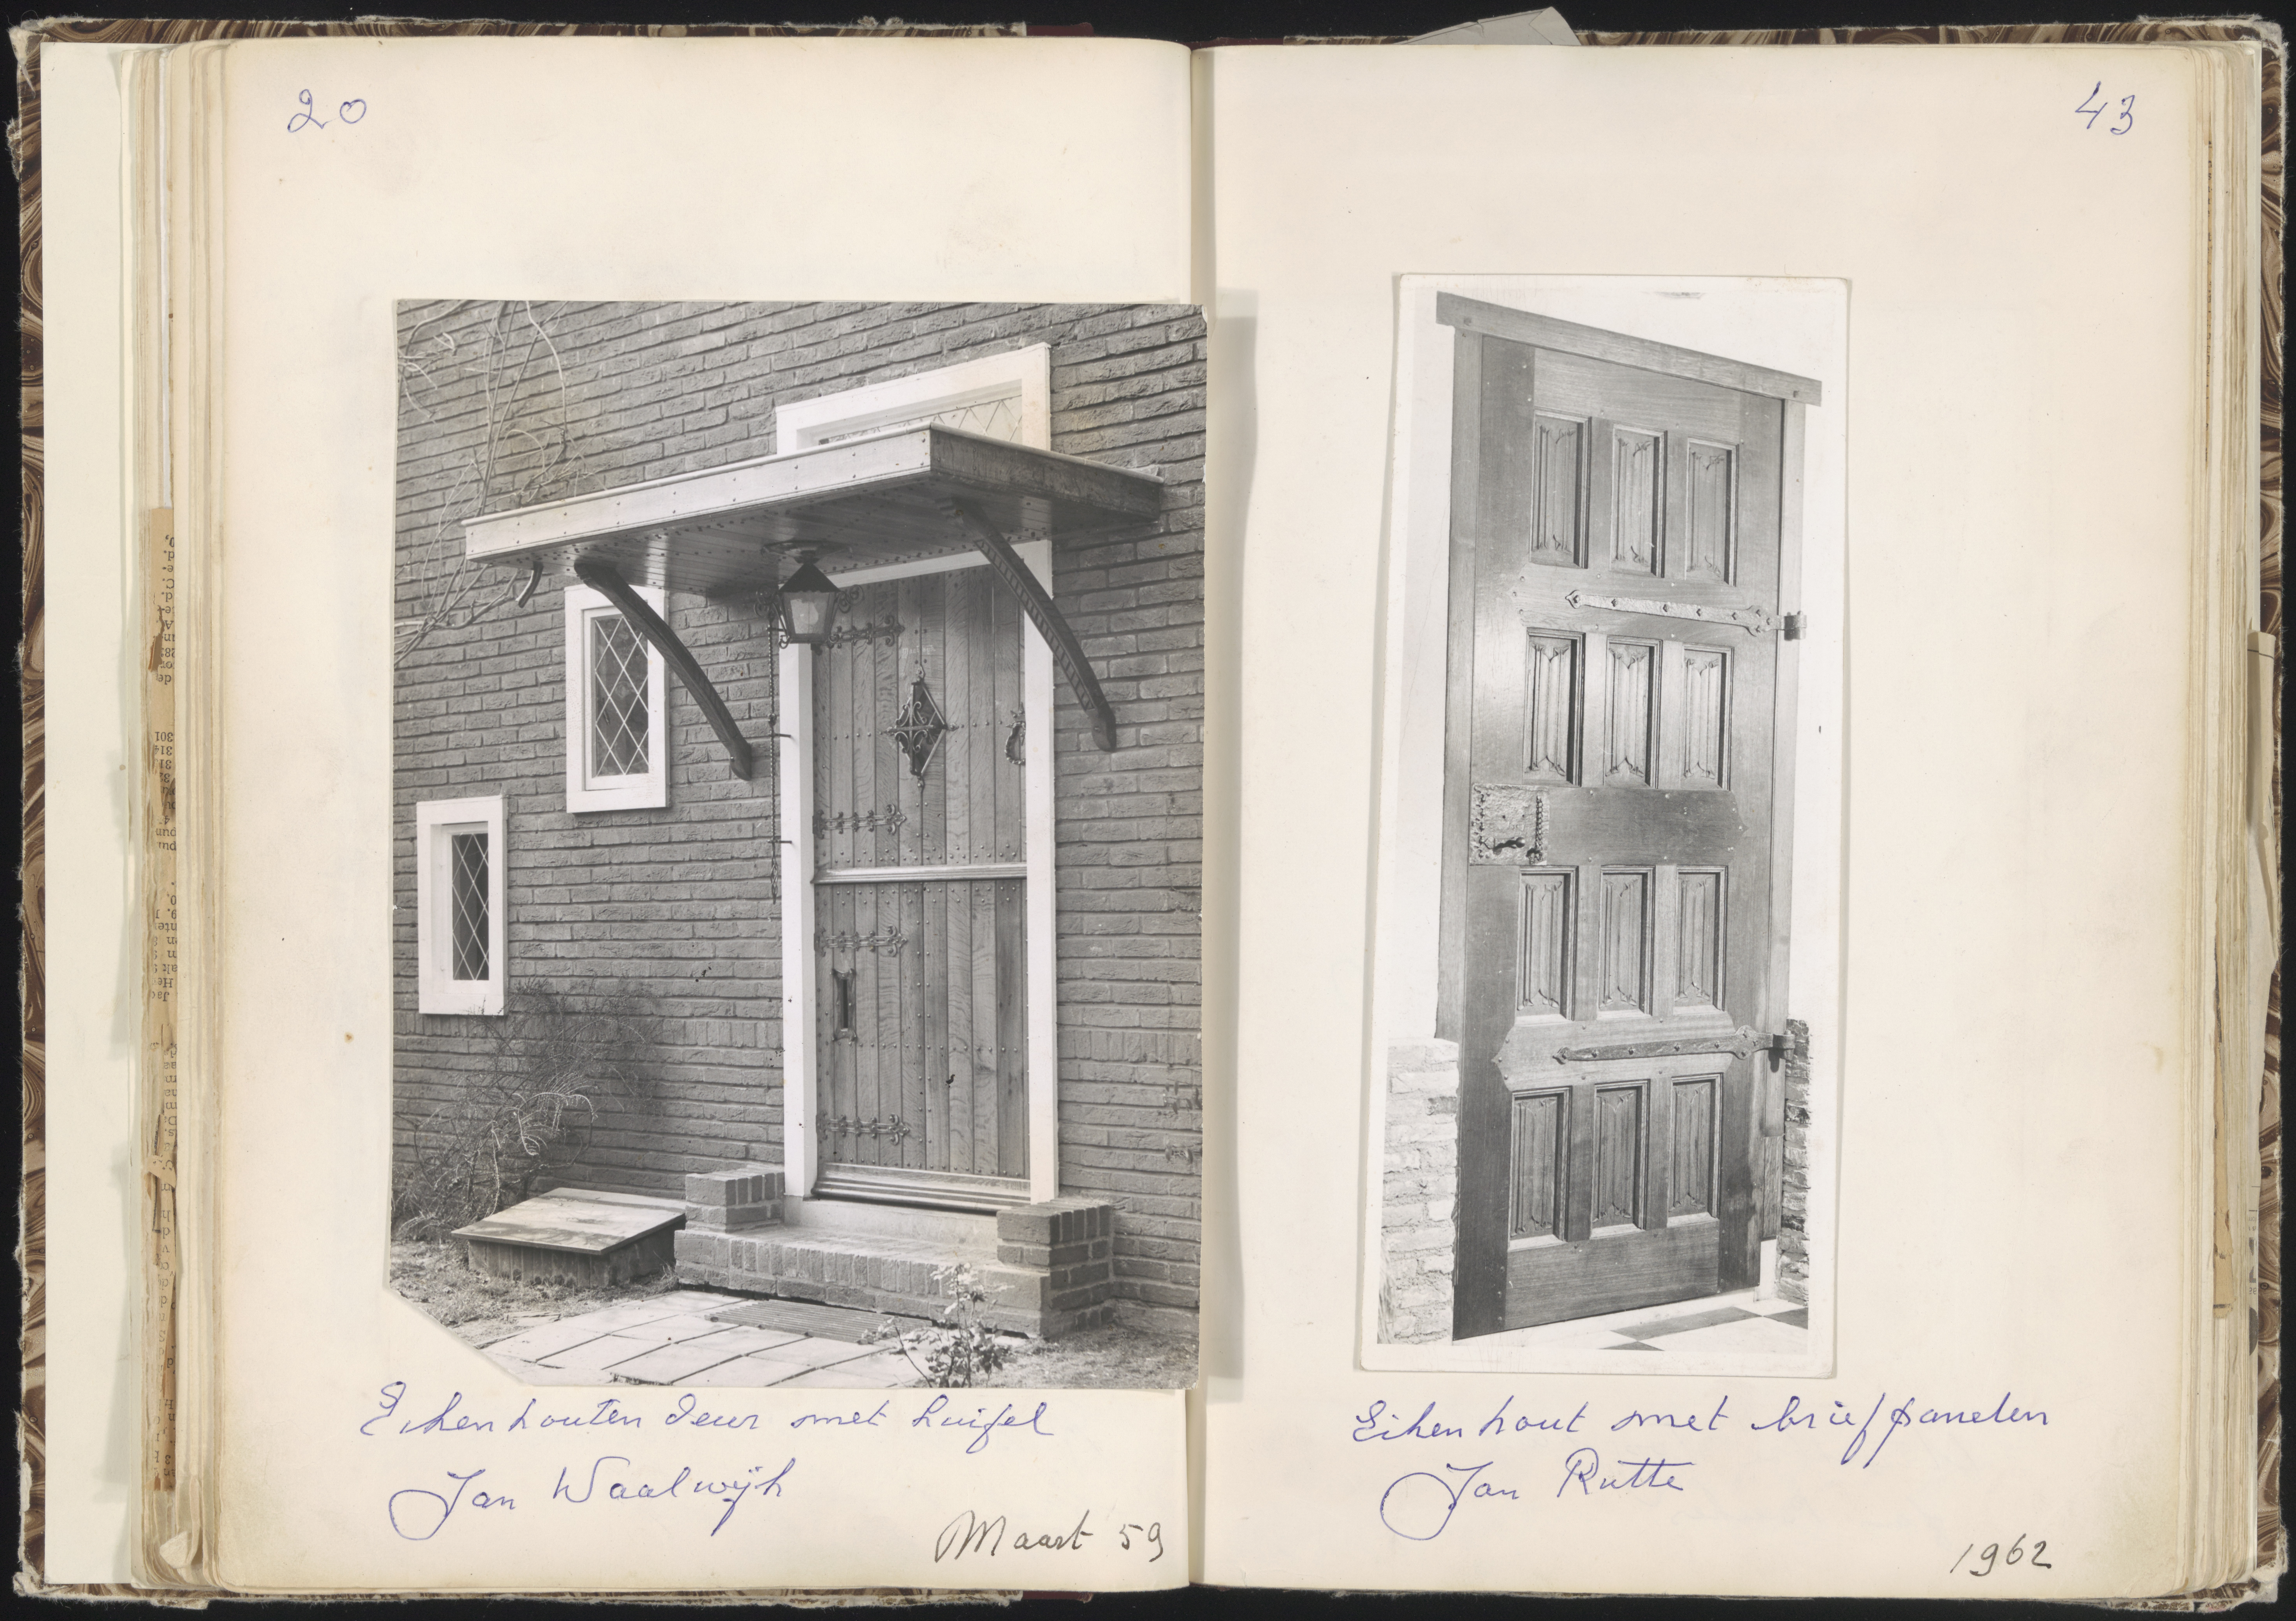 20
Eikenhouten deur met huifel
Jan Waalwijk
Maart 59
43
Eikenhout met briefpanelen
Jan Rutte
1962